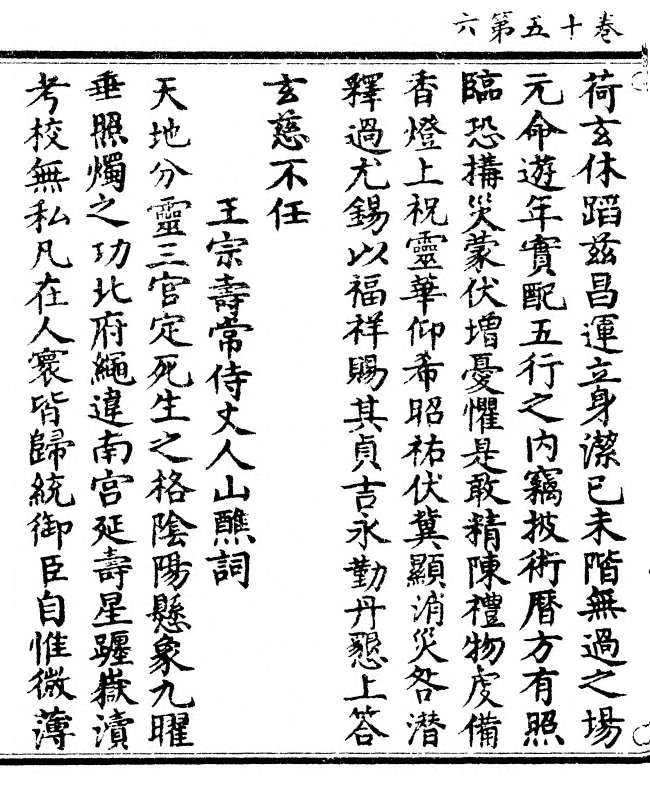 卷十五第六
荷玄休蹈茲昌運立身潔已未階無過之場
元命遊年實配五行之内竊披術曆方有照
臨恐搆災蒙伏增憂懼是敢精陳禮物虔備
香燈上祝靈華仰希昭祐伏冀顯消災咎潜
釋過尤錫以福祥賜其貞吉永勤丹懇上答
玄慈不任
王宗壽常侍丈人山醮詞
天地分靈三官定死生之格陰陽懸象九曜
垂照燭之功北府繩違南宮延壽星躔嶽瀆
考校無私凡在人寰皆歸統御臣自惟微薄